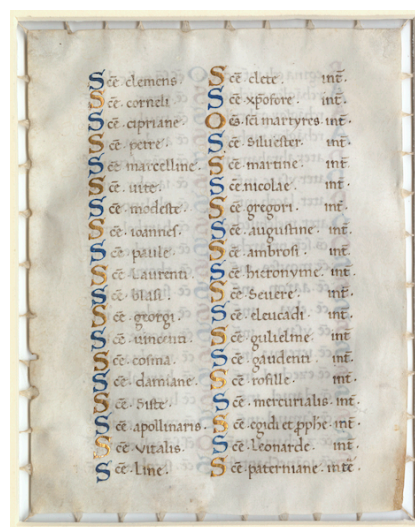 Sce clemens
Sce corneli
Sce cipriane.
Sce petre
Sce marcelline.
Sce uite.
Sce modeste.
Sce ioannes.
Sce paule.
Sce Laurenti
Sce blasi.
Sce georgi.
Sce uincenti.
Sce cosma.
Sce damiane.
Sce Siste.
Sce apollinaris.
Sce Vitalis.
Sce Line.
Scē clete. int̄.
Scē xp̄ofore. int̄.
Oēs sc̄i martyres int̄.
Scē Siluester. int̄.
Scē martine. int̄.
Scē nicolae. int̄.
Scē gregori. int̄.
Scē augustine. int̄.
Scē ambrosi. int̄.
Scē hieronyme. int̄.
Scē Seuere. int̄.
Scē eleucadi. int̄.
Scē gulielme. int̄.
Scē gaudenti. int̄.
Scē rofille. int̄.
Scē mercurialis. int̄.
Scē egidi et pphe. int̄.
Scē Leonarde. int̄.
Scē paterniane. intē.